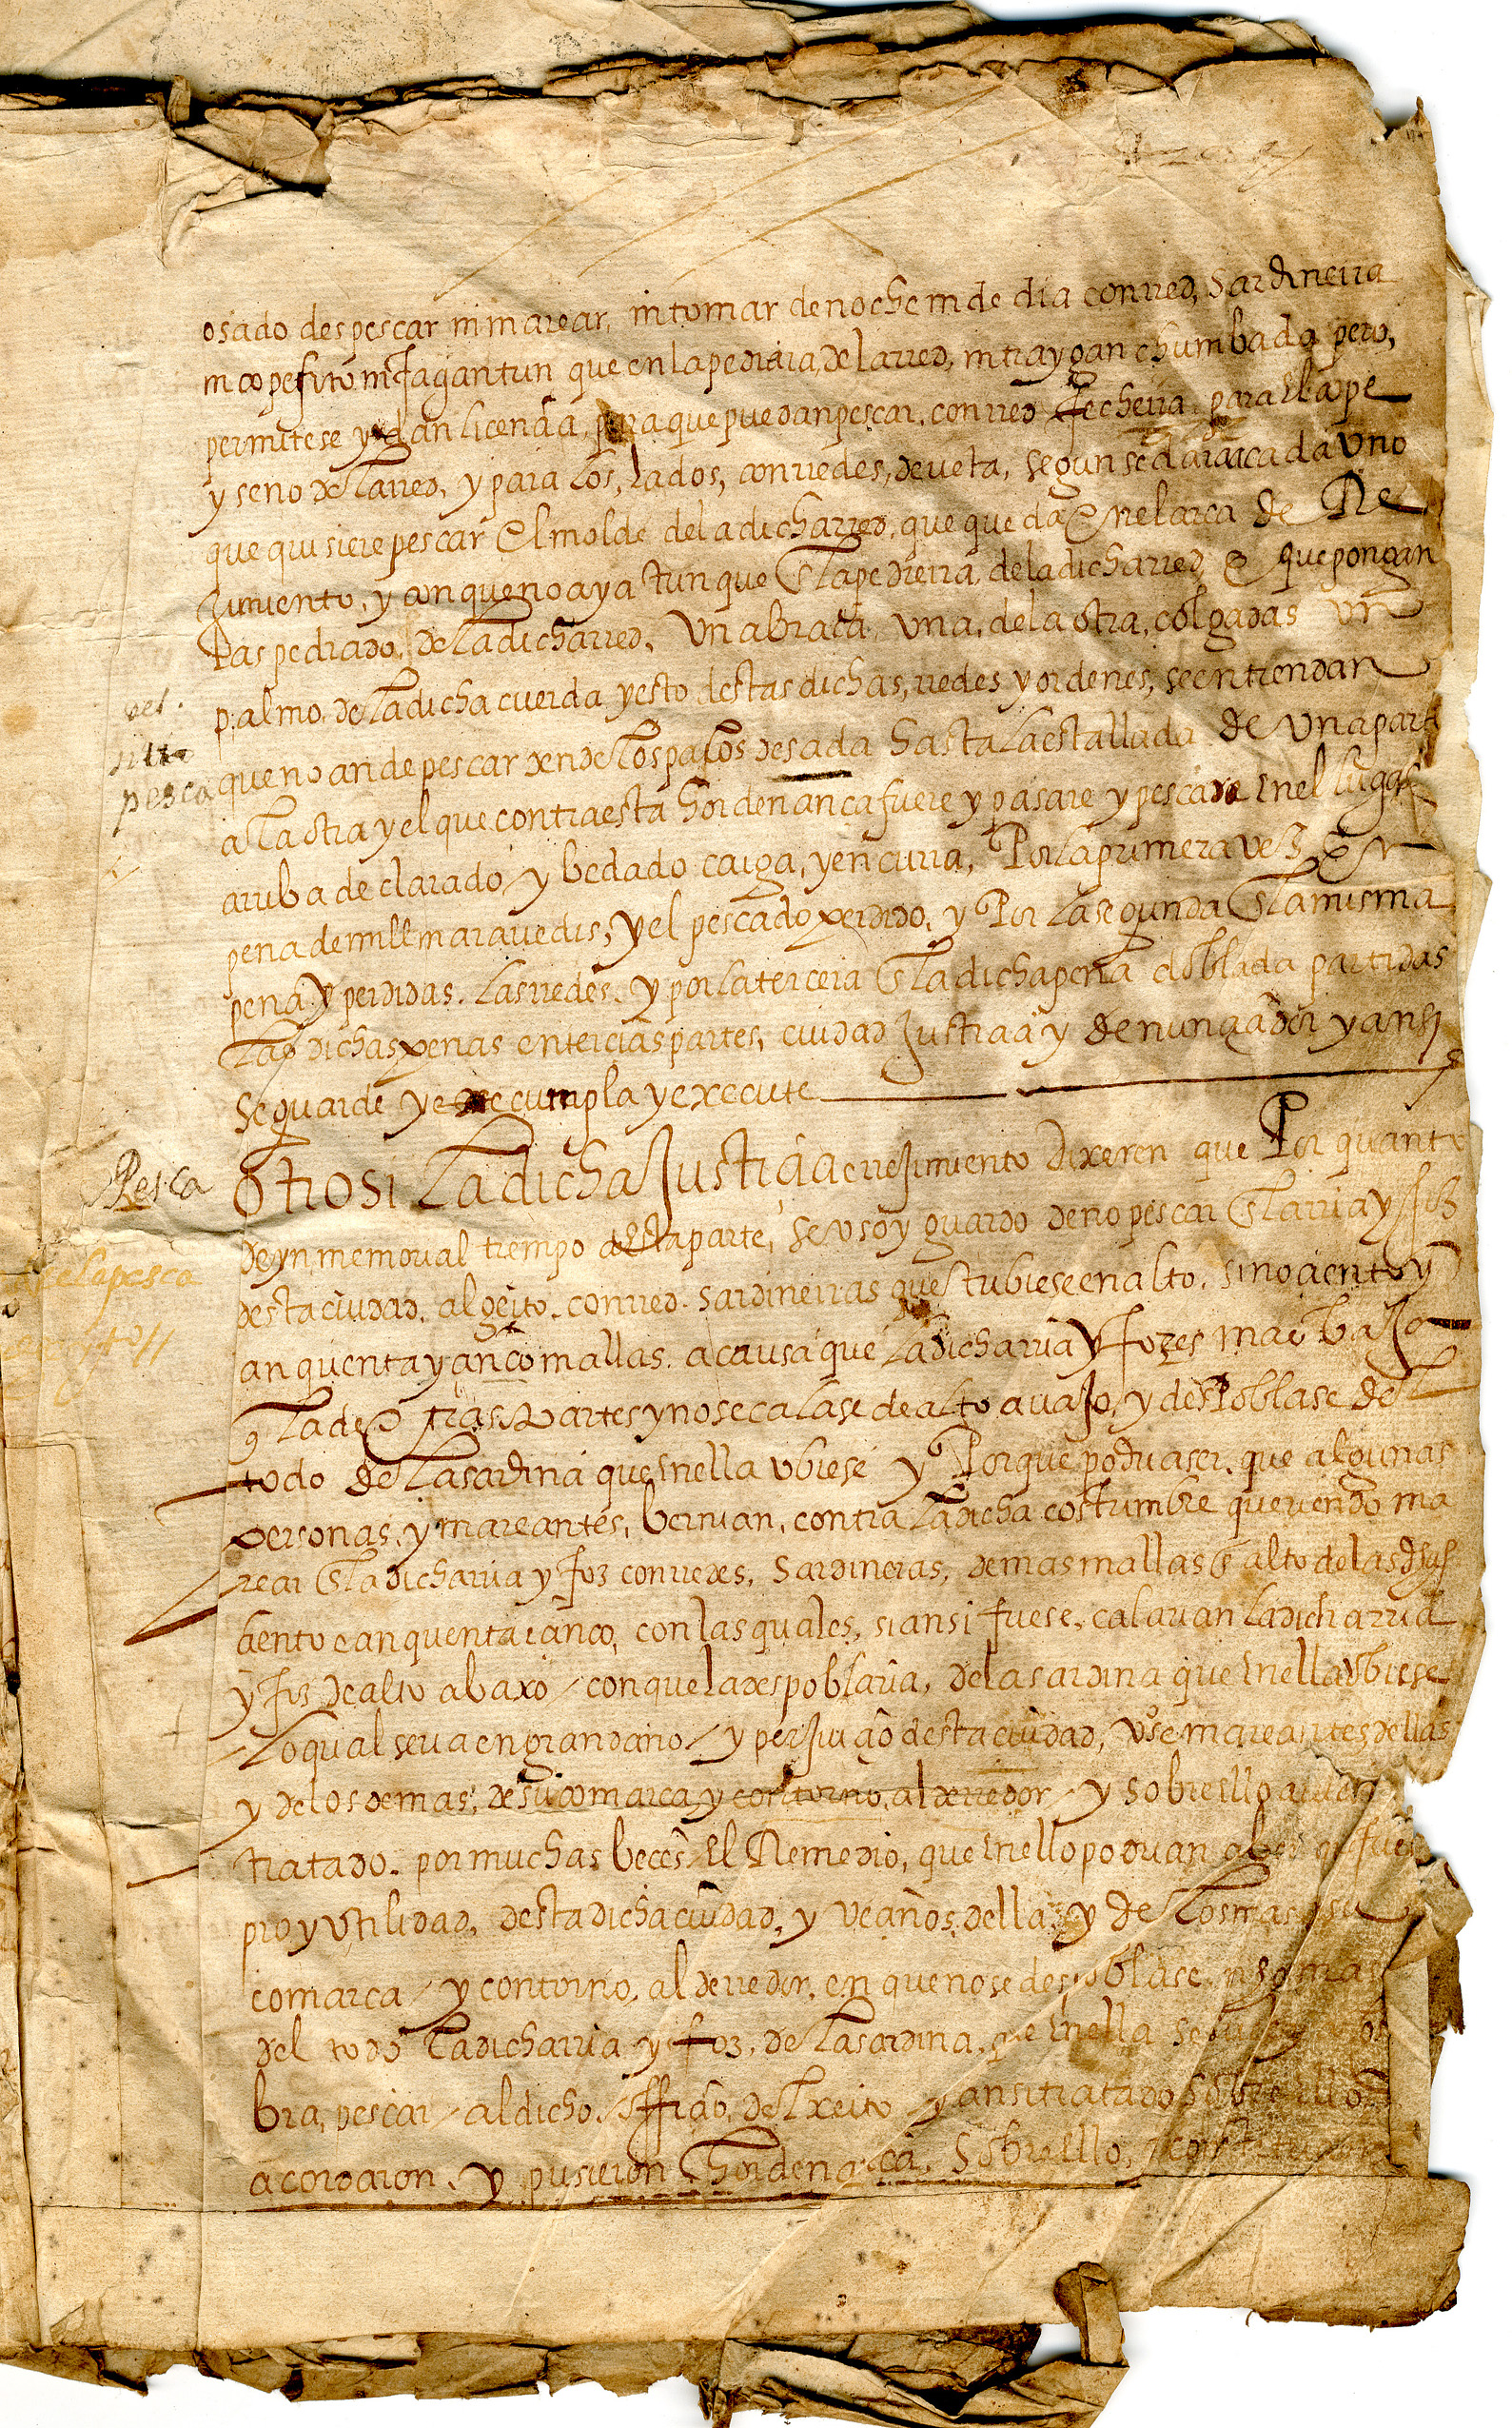 osado des pescar ni marear, ni tomar de noche ni de dia con red, sardineira
ni copefito ni fagan tun que en la pedraira, de la rred, ni traygan chumbada pero,
permitese y dan licencia, para que puedan pescar, con rred fecheira, para el cope
y seno de la rred, y para los, lados, con redes, de veta, segun se dara a cada uno
que quisiere pescar el molde de la dicha rred, que queda en el arca de Re
gimiento, y con que no aya tun que es la pedreira, de la dicha rred, e que pongan
las pedrado, de la dicha rred, una braça una, de la otra, colgadas un
palmo, de la dicha cuerda y esto destas dichas, redes y ordenes, se entiendan
que no an de pescar dende los palos desada hasta la estallada de una part
a la otra y el que contra esta hordenanca fuere y pasare y pescare en el lugar
arriba declarado y bedado caiga, y encurra, Por la primera vez en
pena de mill maravedis, y el pescado perdido, y Por la segunda es la misma
pena, y perdidas, las redes, y por la tercera es la dicha pena doblada partidas
las dichas penas en tercias partes, ciudad Justicia y denunciador y ansi
se guarde y cumpla y execute
Pesca
Otrosi La dicha Justicia e rrejimiento dixeron que Por quanto
de ynmemorial tiempo a esta parte, se uso y guardo de no pescar es la rria y foz
desta ciudad, al geito, con red, sardineiras que estubiese en alto, sino ciento y
cinquenta y cinco mallas, a causa que la dicha rria y fozes mas baxo
que la de otras partes y no se calase de alto avajo, y despoblase del
todo de la sardina que en ella ubiese y Porque podria ser, que algunas
personas, y mareantes, bernian, contra la dicha costumbre queriendo ma
rear es la dicha rria y foz con redes, sardineras, de mas mallas en alto de las dhas
ciento cinquenta e cinco, con las quales, si ansi fuese, calarian la dicha rria
y foz de alto abaxo / con que la despoblaria, de la sardina que en ella ubiese
Lo qual seria en gran daño / y perjuicio desta ciudad, vos e mareantes dellas
y de los demas, de su comarca, y contorno, al derredor / y sobre ello avian
tratado, por muchas beces, El Remedio, que en ello podrian aber q fuese
pro y utilidad, desta dicha ciudad, y vecinos della, y de los mas su
comarca / y contorno, al derredor, en que no se despoblase
del todo la dicha rria y foz, de la sardina, que en ella
bra, pescar / al dicho, officio, del xeito / y ansi tratado sobre ello
acordaron, y pusieron, hordenança, sobre ello,